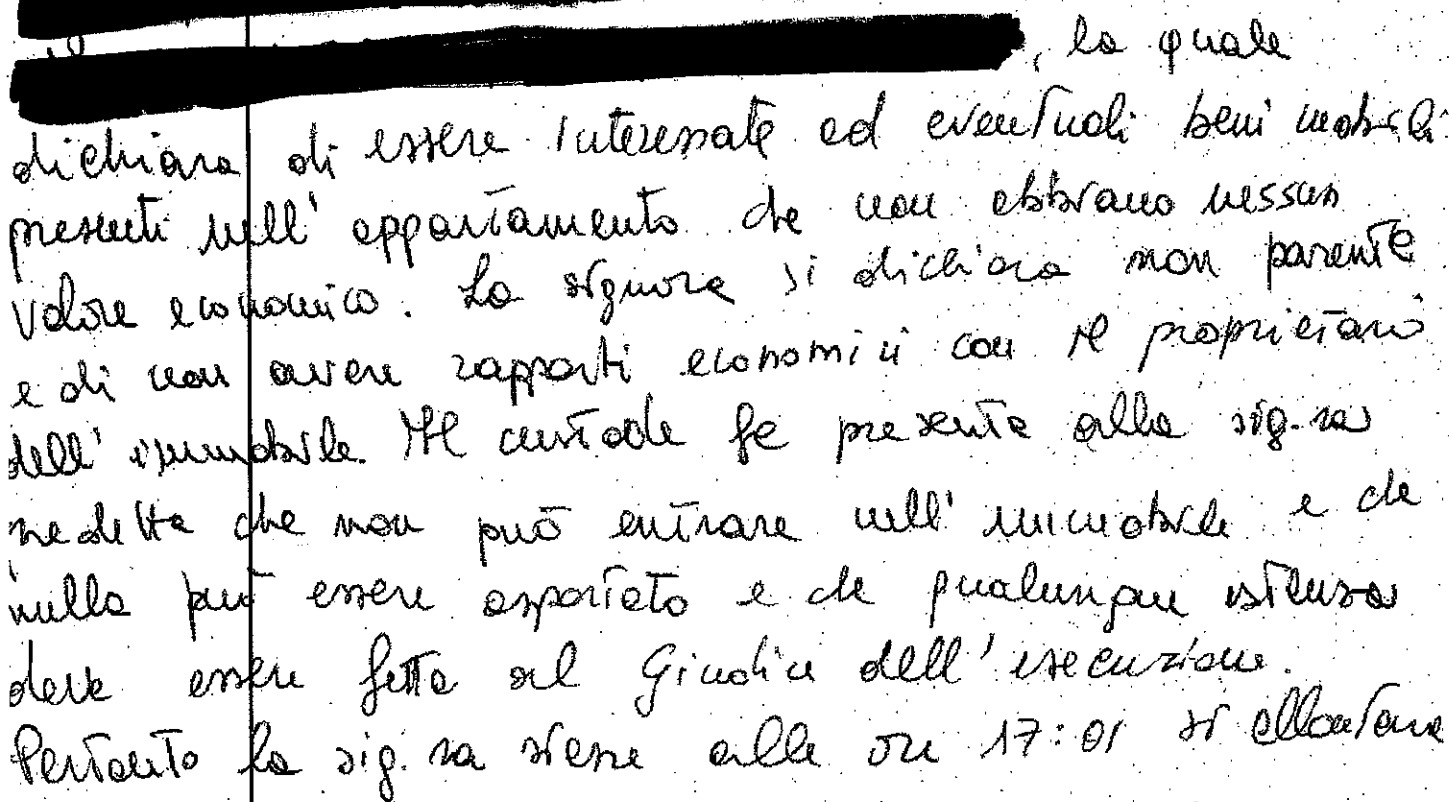 , la quale
dichiara di essere interessata ad eventuali beni mobili
presenti nell'appartamento che non abbiano nessun
valore economico. La signora si dichiara non parente
e di non avere rapporti economici con il proprietario
dell'immobile. Il custode fa presente alla sig.ra
predetta che non può entrare nell'immobile e che
nulla può essere asportato e che qualunque istanza
deve essere fatta al Giudice dell'esecuzione.
Pertanto la sig.ra stessa alle ore 17:01 si allontana